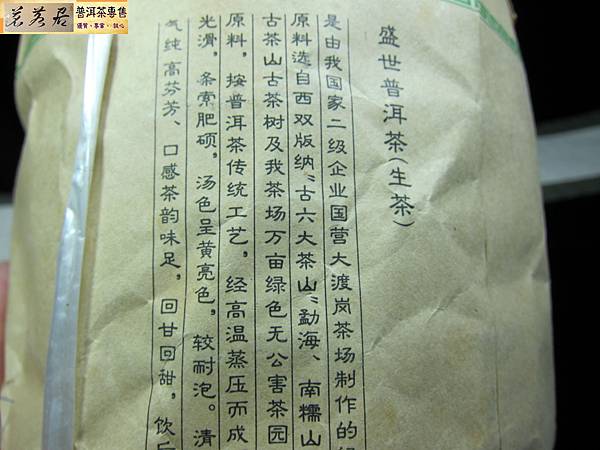 茗荟居
普洱茶專售
優質、專業、誠心
盛世普洱茶(生茶)
是由我国家二级企业国营大渡岗茶场制作的
原料选自西双版纳“古六大茶山”勐海、南糯山
古茶山古茶树及我茶场万亩绿色无公害茶园
原料，按普洱茶传统工艺，经高温蒸压而成
光滑，条索肥硕，汤色呈黄亮色，较耐泡。清
气纯高芬芳、口感茶韵味足，回甘回甜，饮后